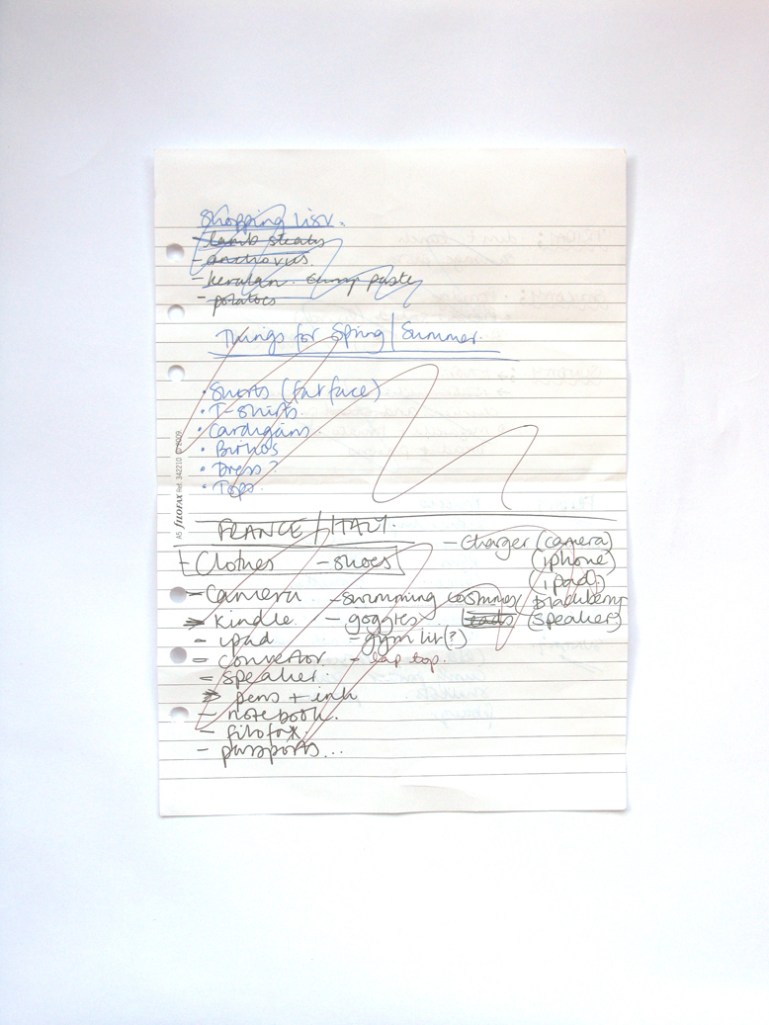 Shopping List.
- lamb steaks
- anchovies.
- keralan curry paste
- potatoes
Things for Spring | Summer.
• Shorts (fat face)
• T-shirts
• Cardigans
• Birkos
• Dress?
• Tops.
A5 filofax Ref. 342210 © 2009
FRANCE / ITALY.
- Clothes - shoes
- Charger (camera)
(iphone)
(ipad)
blackberry
(speaker)
- Camera - swimming costumes
- kindle - goggles leads
- ipad - gym kit(?)
- convertor - lap top.
- speaker.
- pens + ink
- notebook.
- filofax.
- passports...